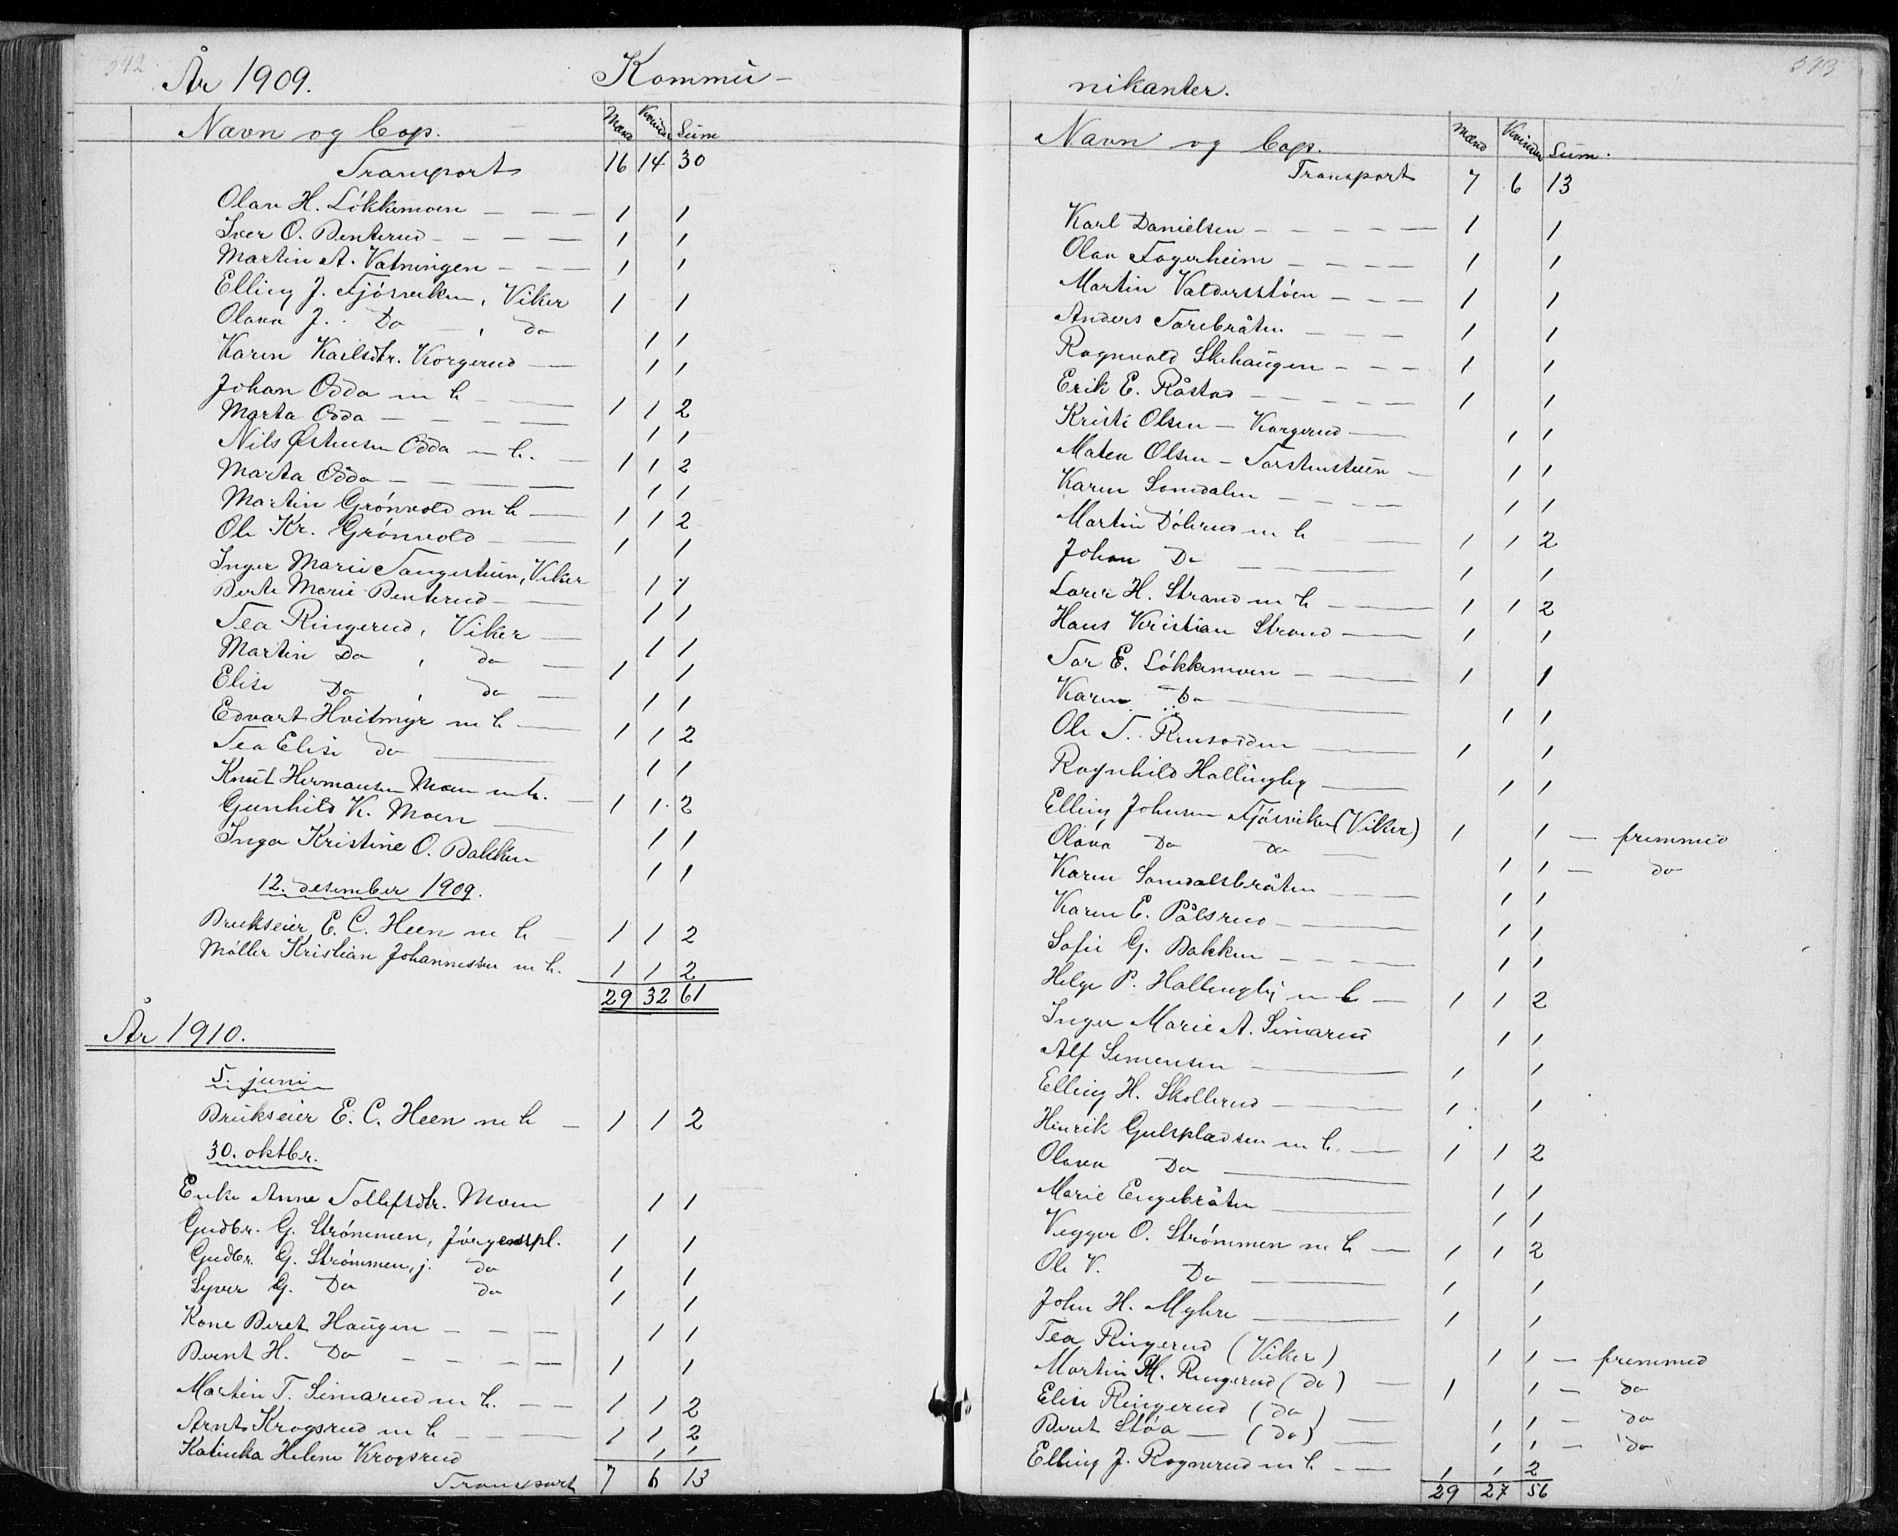 342.
År 1909. Kommu-
Navn og Cop. Mænd Kvinder Sum
Transport 16 14 30
Olav H. Løkkemoen 1 1
Iver O. Benterud 1 1
Martin A. Vatningen 1 1
Elling J. Fjøsviken, Viker 1 1
Olava J. Do, do 1 1
Karen Karlsdtr. Korgerud 1 1
Johan Odda m h 1 1 2
Marta Odda 1 1
Nils Østensen Odda m h. 1 1 2
Marta Odda 1 1
Martin Grønvold m h 1 1 2
Ole Kr. Grønvold 1 1
Inger Marie Tangestuen, Viker 1 1
Berte Marie Benterud 1 1
Tea Ringerud, Viker 1 1
Martin Do, do 1 1
Elise Do, do 1 1
Edvart Hvitmyr m h 1 1 2
Tea Elise do 1 1
Knut Hermansen Moen m h. 1 1 2
Gunhild K. Moen 1 1
Inga Kristine O. Bakken 1 1
12. desember 1909.
Brukseier E. C. Heen m h 1 1 2
Møller Kristian Johannessen m h. 1 1 2
29 32 61
År 1910.
5. juni
Brukseier E. C. Heen m h 1 1 2
30. oktbr.
Enke Anne Tollefsdtr. Moen 1 1
Gudbr. G. Strømmen, Jørgenspl. 1 1
Gudbr. G. Strømmen, j. do 1 1
Syver G. Do do 1 1
Kone Beret Haugen 1 1
Bernt H. Do 1 1
Martin T. Simarud m h. 1 1 2
Arnt Krogsrud m h 1 1 2
Katinka Helene Krogsrud 1 1
Transport 7 6 13
343
nikanter.
Navn og Cop. Mænd Kvinder Sum.
Transport 7 6 13
Karl Danielsen 1 1
Olav Fagerheim 1 1
Martin Valdersstøen 1 1
Anders Torebråten 1 1
Ragnvald Skihaugen 1 1
Erik E. Råstad 1 1
Kristi Olsen - Korgerud 1 1
Matea Olsen - Torstenstuen 1 1
Karen Somdalen 1 1
Martin Dølerud m h 1 1 2
Johan Do 1 1
Lorer H. Strand m h 1 1 2
Hans Kristian Strand 1 1
Tor E. Løkkemoen 1 1
Karen Do 1 1
Ole T. Rensodden 1 1
Ragnhild Hallingby 1 1
Elling Johnsen Fjøsviken (Viker) 1 1 - fremmed
Olava Do do 1 1 - do
Karen Somdalsbråten 1 1
Karen E. Pålsrud 1 1
Sofie G. Bakken 1 1
Helge P. Hallingby m h 1 1 2
Inger Marie A. Simarud 1 1
Alf Simensen 1 1
Elling H. Skollerud 1 1
Henrik Gulspladsen m h. 1 1 2
Olava Do 1 1
Marie Engebråten 1 1
Vegger O. Strømmen m h 1 1 2
Ole V. Do 1 1
John H. Myhre 1 1
Tea Ringerud (Viker) 1 1 - fremmed
Martin M. Ringerud (do) 1 1 - do
Elise Ringerud (do) 1 1 - do
Beret Støa (do) 1 1 - do
Elling J. Rognerud m h 1 1 2
29 27 56